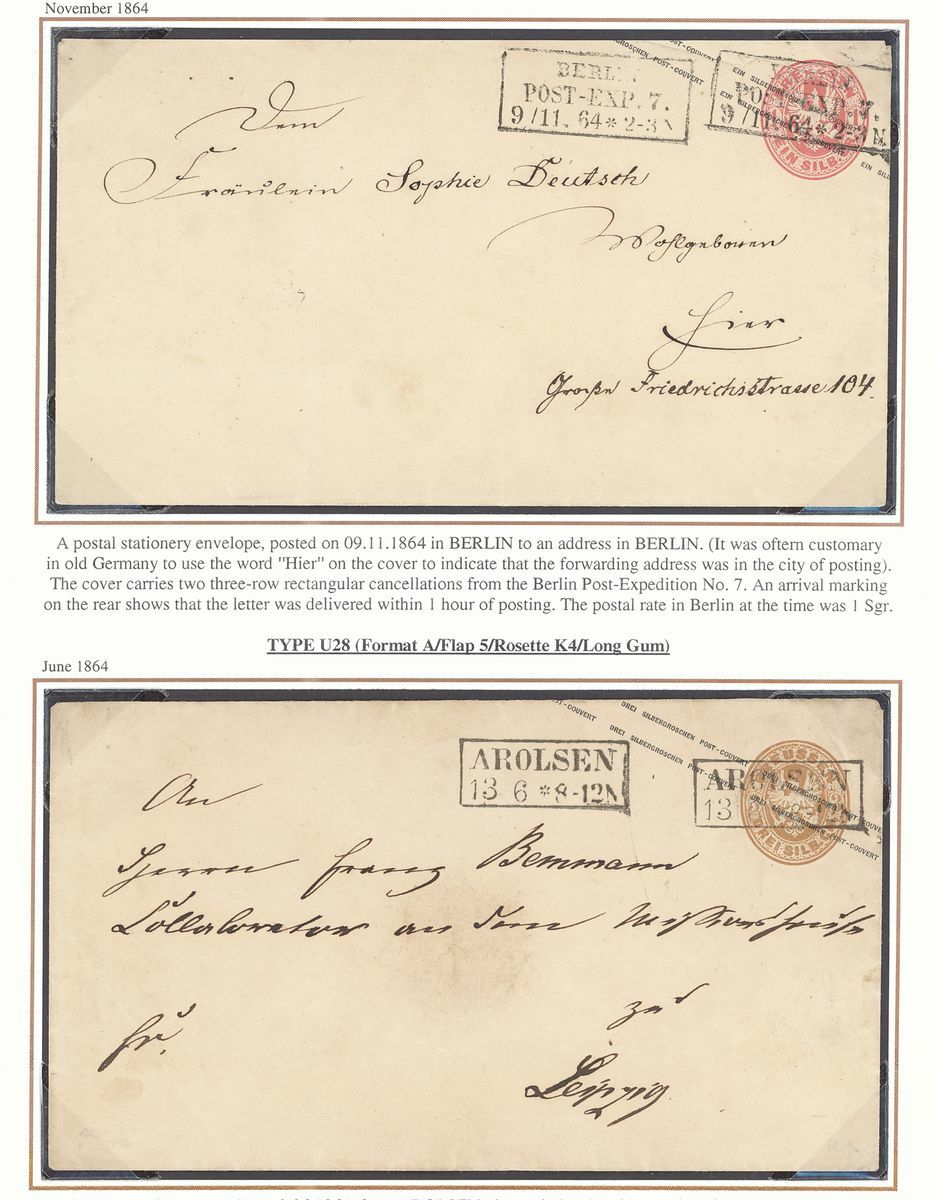 November 1864
BERLIN
POST-EXP. 7.
9/11. 64 * 2-3 N
POST-EXP. 7.
9/11. 64 * 2-3 N
EIN SILB.
EIN SILBERGROSCHEN POST-COUVERT
Dem
Fräulein Sophie Deutsch
Wohlgeboren
Hier
Große Friedrichsstrasse 104.
A postal stationery envelope, posted on 09.11.1864 in BERLIN to an address in BERLIN. (It was oftern customary
in old Germany to use the word "Hier" on the cover to indicate that the forwarding address was in the city of posting).
The cover carries two three-row rectangular cancellations from the Berlin Post-Expedition No. 7. An arrival marking
on the rear shows that the letter was delivered within 1 hour of posting. The postal rate in Berlin at the time was 1 Sgr.
TYPE U28 (Format A/Flap 5/Rosette K4/Long Gum)
June 1864
DREI SILBERGROSCHEN POST-COUVERT
DREI SILBERGROSCHEN POST-COUVERT
AROLSEN
13 6 * 8-12N
AROLSEN
13
PREUSSEN
DREI SILB.
An
Herrn Franz Bemmann
Collaborator an dem Waisenhause
fr.
zu
Leipzig